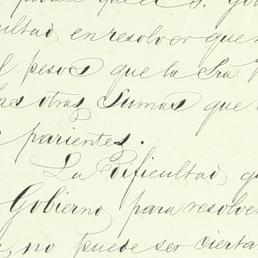 cultad en resolver que
l pesos que la Sra.
las otras sumas que
parientes.
La dificultad q
Gobierno para resolver
, no puede ser cierta